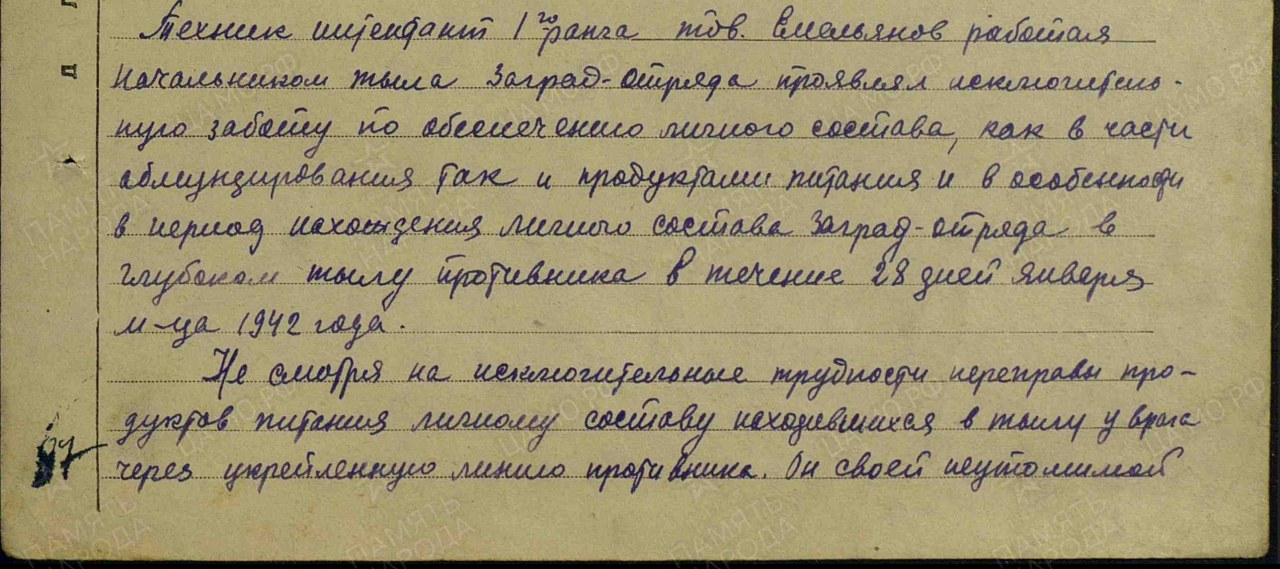 Техник интендант 1го ранга тов. Емельянов работая
начальником тыла Заград-отряда проявлял исключитель-
ную заботу по обеспечению личного состава, как в части
обмундирования так и продуктами питания и в особенности
в период нахождения личного состава Заград-отряда в
глубоком тылу противника в течение 28 дней января
м-ца 1942 года.
Не смотря на исключительные трудности переправы про-
дуктов питания личному составу находившихся в тылу у врага
через укрепленную линию противника. Он своей неутомимой